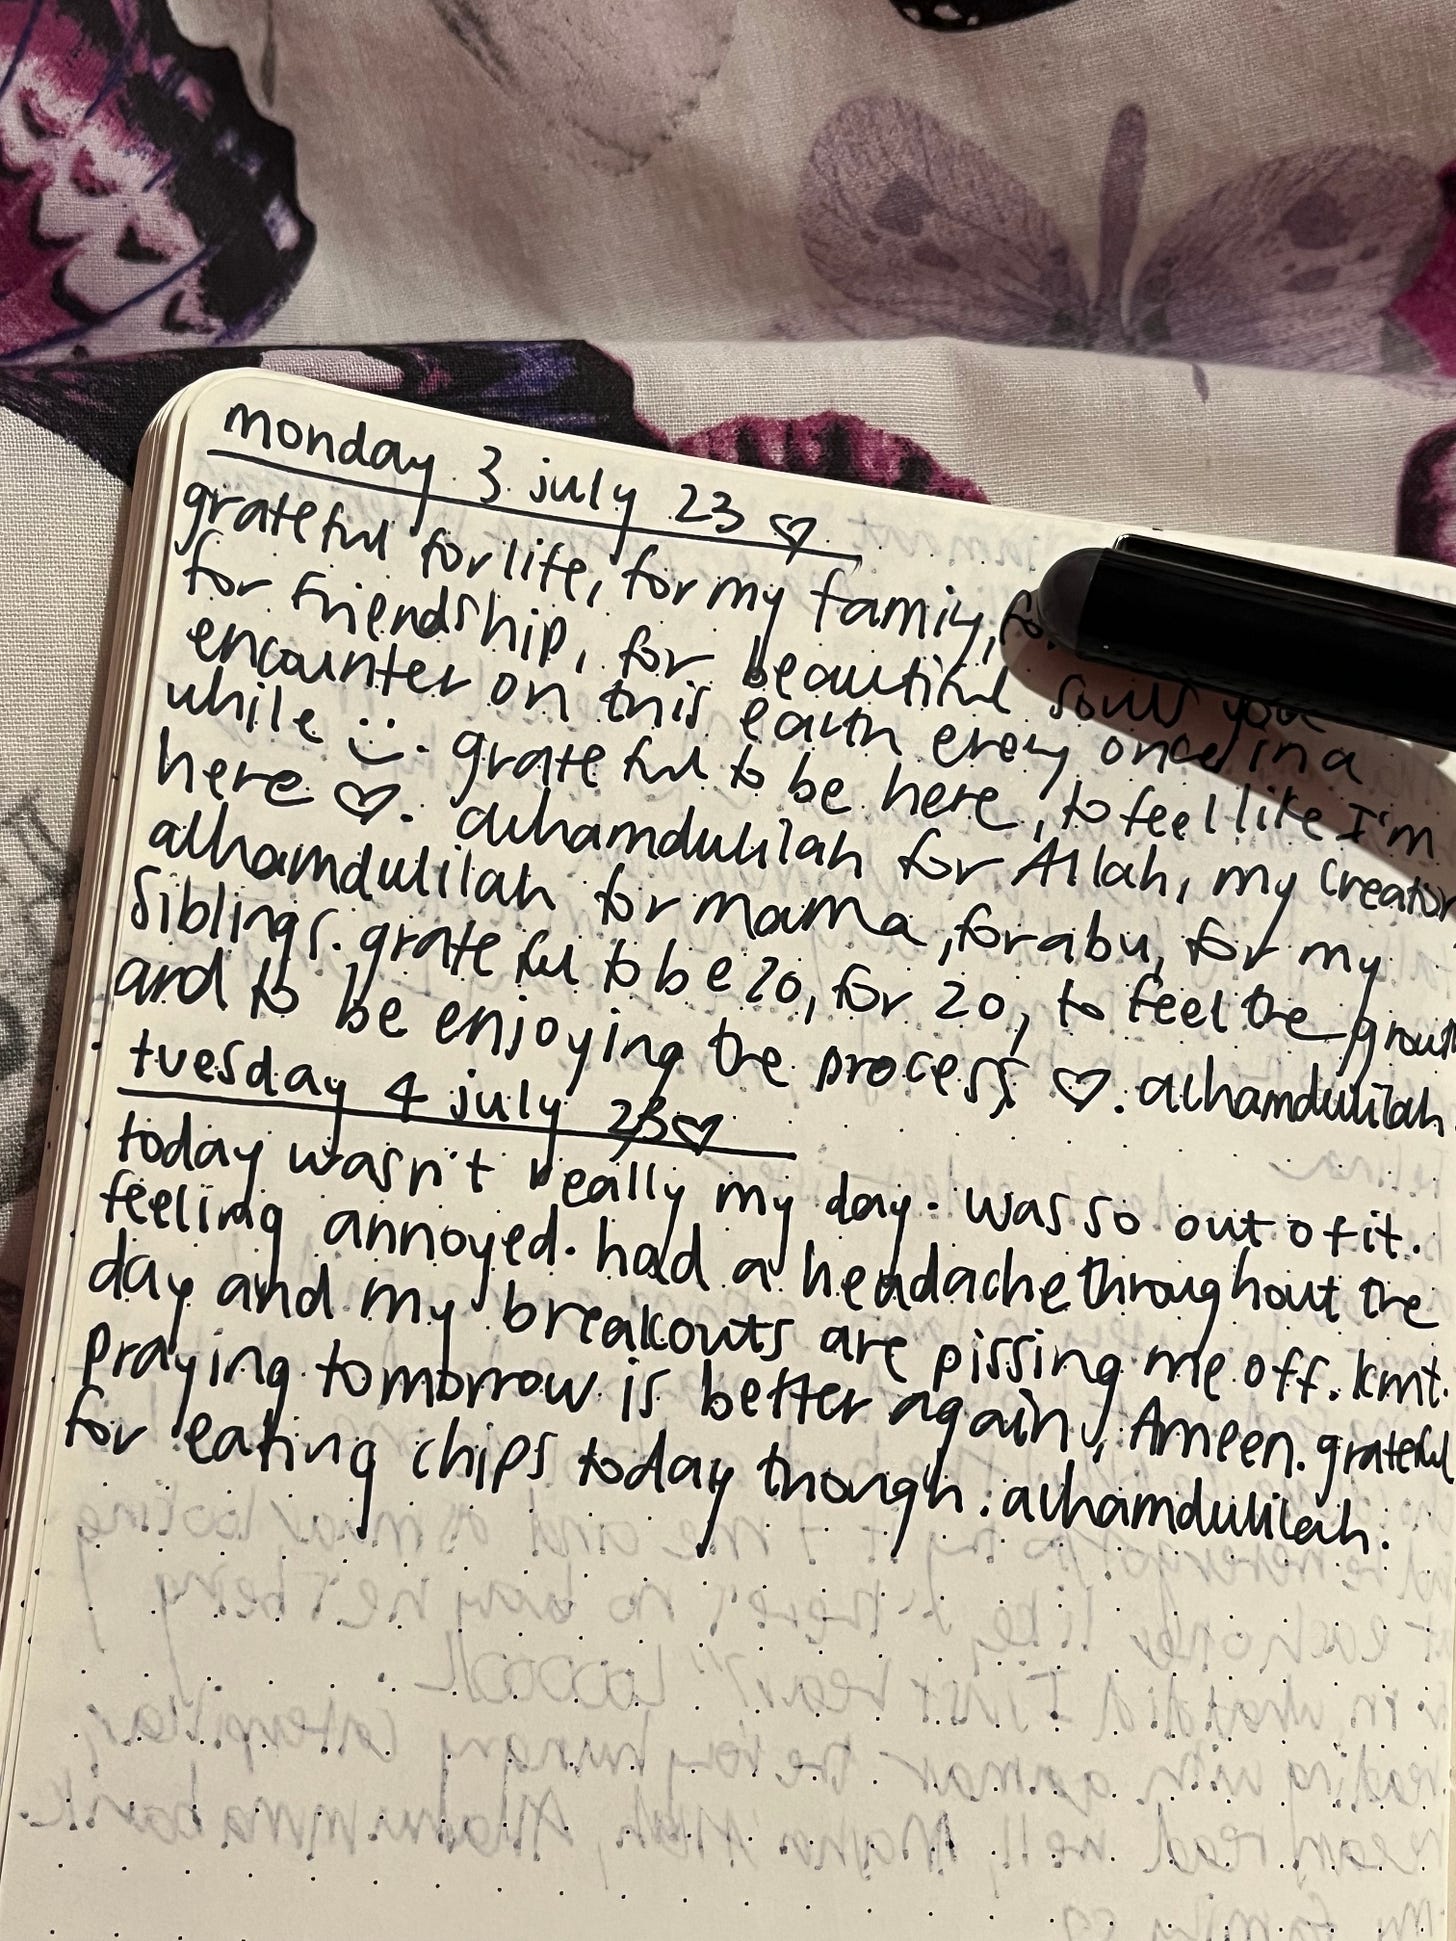 monday 3 july 23 ♡
grateful for life, for my famiy,
for friendship, for beautiful souls you
encounter on this earth every once in a
while :). grateful to be here, to feel like I'm
here ♡. alhamdulilah for Allah, my Creator
alhamdulilah for mama, for abu, for my
siblings. grateful to be 20, for 20, to feel the
and to be enjoying the process ♡. alhamdulilah.
tuesday 4 july 23 ♡
today wasn't really my day. was so out of it.
feeling annoyed. had a headache throughout the
day and my breakouts are pissing me off. kmt.
praying tomorrow is better again, Ameen. grateful
for eating chips today though. alhamdulilah.